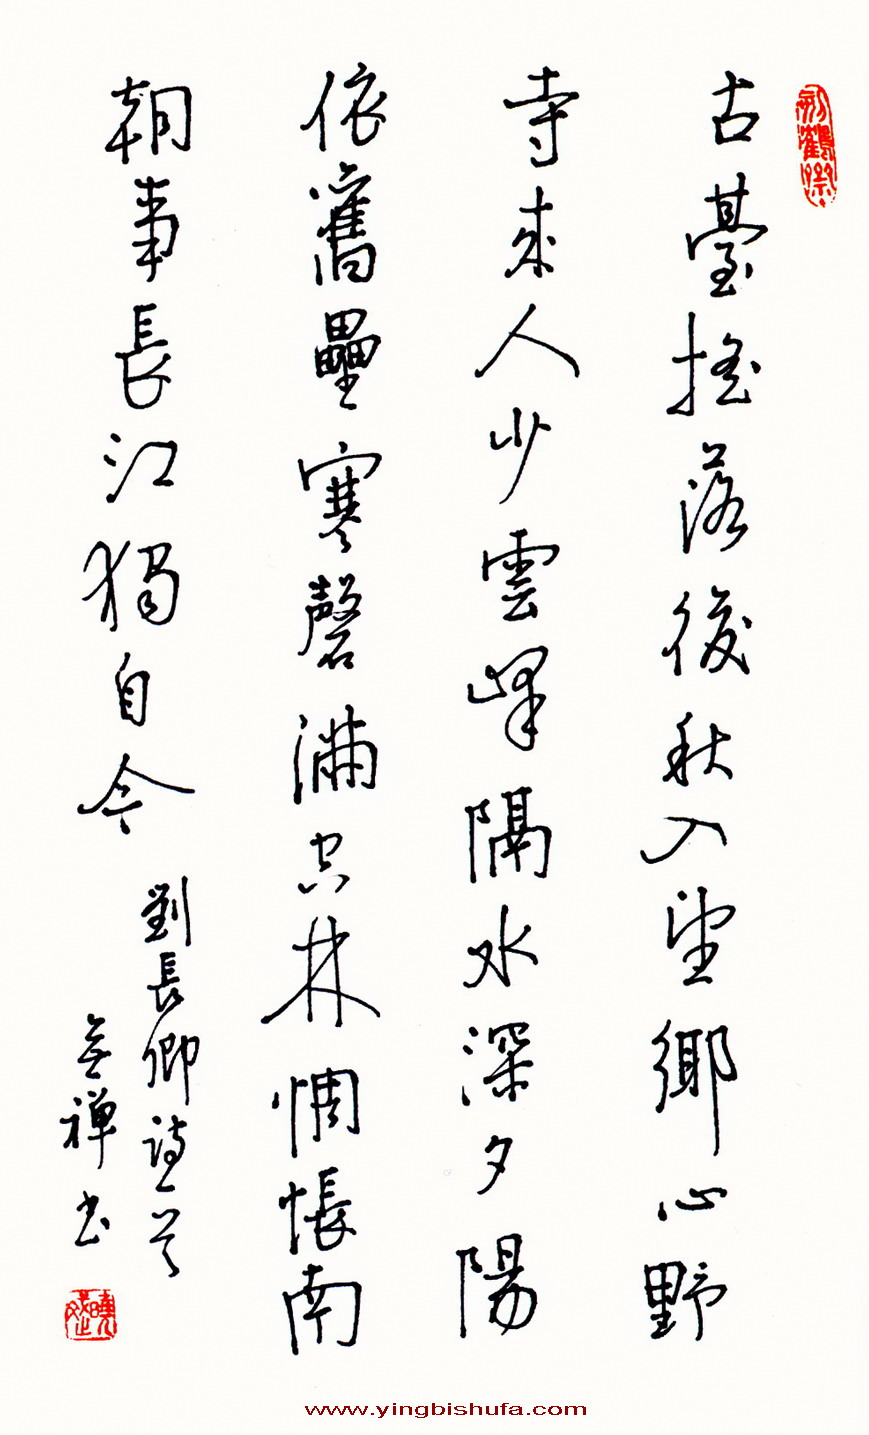 古臺搖落後秋入望鄉心野
寺來人少雲峰隔水深夕陽
依舊壘寒磬滿空林惆悵南
朝事長江獨自今
劉長卿詩一首
禪书
www.yingbishufa.com